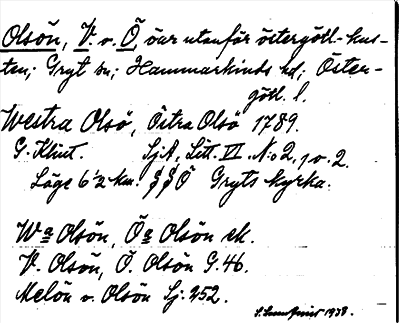 Olsön, V. o. Ö, öar utanför östergötl.-kus-
ten; Gryt sn; Hammarkinds hd; Öster-
götl. l.
Westra Olsö, Östra Olsö 1789.
G. Klint. SjA, Litt. VI. N:o 2, 1 o. 2.
Läge 6½ km. SSÖ Gryts kyrka.
Wa Olsön, Öa Olsön ek.
V. Olsön, Ö. Olsön G. 46.
Melön o. Olsön Sj: 252.
1938.